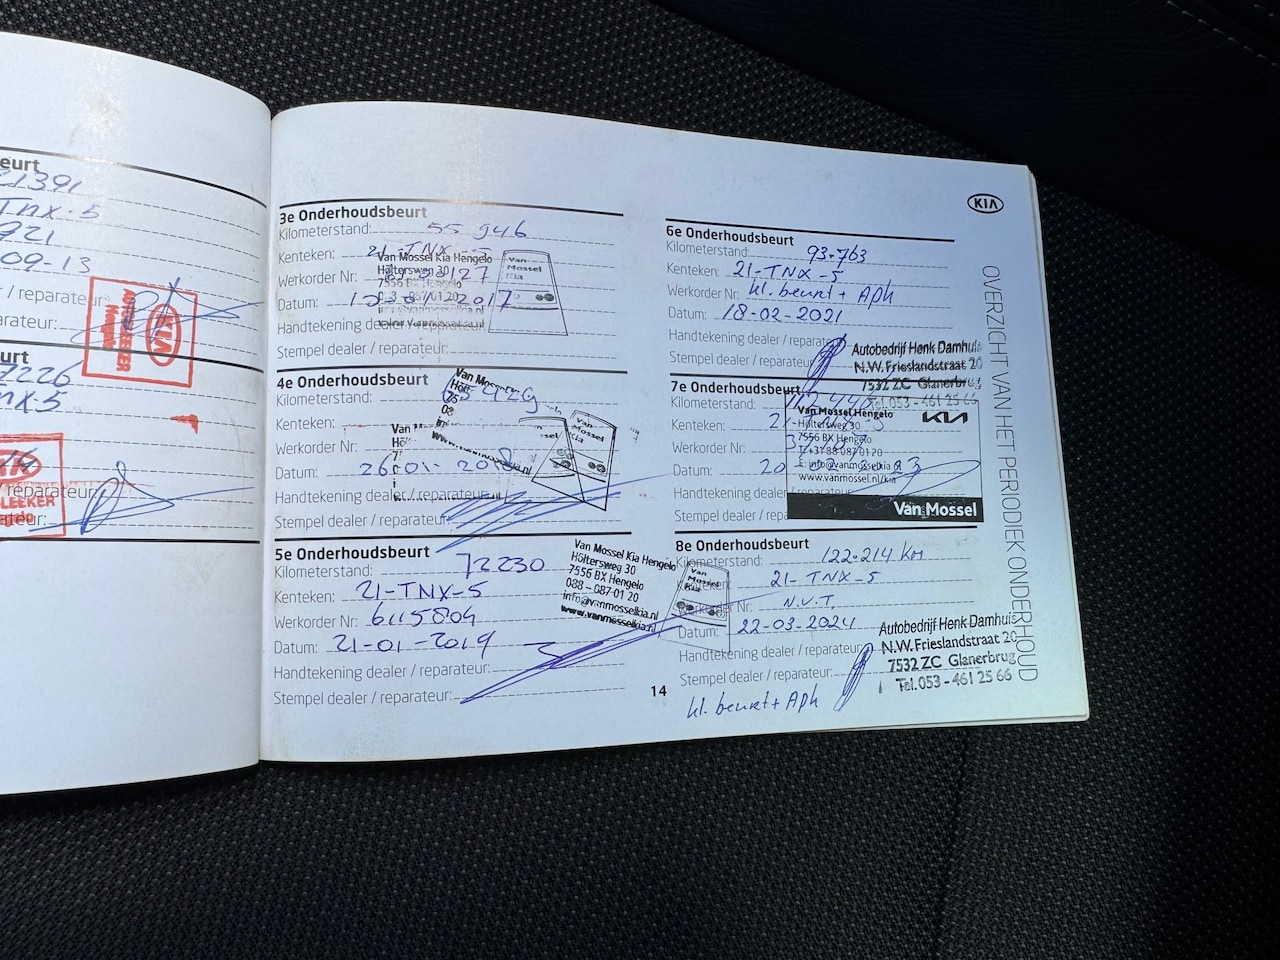 eurt
21391
TNX-5
921
09-13
r / reparateur:
arateur:
KIA
urt
7226
NX5
/ reparateur:
LEEKER
3e Onderhoudsbeurt
Kilometerstand: 55 946
Kenteken: 21-TNX-5
Werkorder Nr:
Datum: 2017
Handtekening dealer / reparateur:
Stempel dealer / reparateur:
Van Mossel Kia Hengelo
Höltersweg 30
7556 BX Hengelo
Van Mossel Kia
4e Onderhoudsbeurt
Kilometerstand:
Kenteken:
Werkorder Nr:
Datum: 26-01-2018
Handtekening dealer / reparateur:
Stempel dealer / reparateur:
Van Mossel Kia
5e Onderhoudsbeurt
Kilometerstand: 72230
Kenteken: 21-TNX-5
Werkorder Nr: 6115804
Datum: 21-01-2019
Handtekening dealer / reparateur:
Stempel dealer / reparateur:
Van Mossel Kia Hengelo
Höltersweg 30
7556 BX Hengelo
088 - 087 01 20
info@vanmosselkia.nl
www.vanmosselkia.nl
Van Mossel Kia
14
KIA
6e Onderhoudsbeurt
Kilometerstand: 93.763
Kenteken: 21-TNX-5
Werkorder Nr: kl. beurt + Apk
Datum: 18-02-2021
Handtekening dealer / reparateur
Stempel dealer / reparateur
Autobedrijf Henk Damhuis
N.W. Frieslandstraat 20
7532 ZC Glanerbrug
Tel. 053 - 461 25 66
7e Onderhoudsbeurt
Kilometerstand:
Kenteken:
Werkorder Nr:
Datum:
Handtekening dealer
Stempel dealer / repa
Van Mossel Hengelo
KIA
Höltersweg 30
7556 BX Hengelo
T: +31 88 087 01 20
E: info@vanmosselkia.nl
www.vanmossel.nl/kia
Van Mossel
8e Onderhoudsbeurt
Kilometerstand: 122.214 km
Kenteken: 21-TNX-5
Werkorder Nr: N.V.T.
Datum: 22-03-2024
Handtekening dealer / reparateur
Stempel dealer / reparateur:
Autobedrijf Henk Damhuis
N.W. Frieslandstraat 20
7532 ZC Glanerbrug
Tel. 053 - 461 25 66
kl. beurt + Apk
OVERZICHT VAN HET PERIODIEK ONDERHOUD